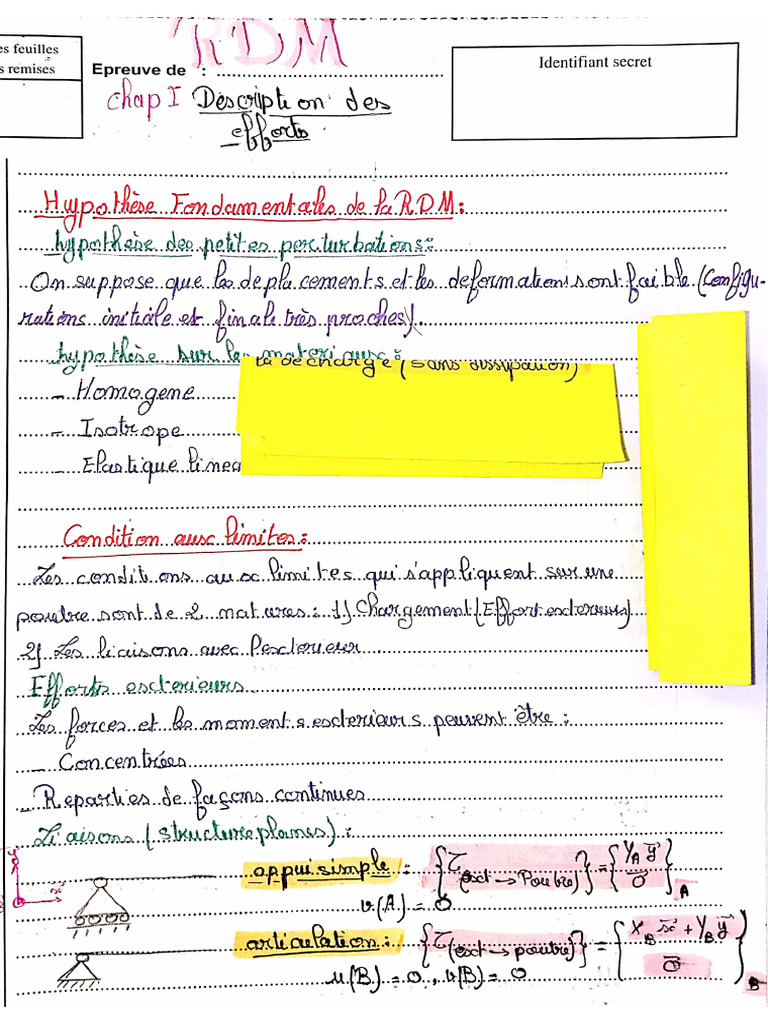 RDM
es feuilles
s remises
Epreuve de :
Identifiant secret
Chap I Description des
efforts
Hypothèse Fondamentales de la RDM:
hypothèse des petites perturbations:
On suppose que les deplacements et les deformations sont faible (Configu-
rations initiale et finale très proches).
hypothèse sur les materiaux:
la décharge (sans dissipation)
- Homogene
- Isotrope
- Elastique linea
Condition aux limites:
Les conditions aux limites qui s'appliquent sur une
poutre sont de 2 natures: 1) Chargement (Effort exterieurs)
2) Les liaisons avec l'exterieur
Efforts exterieurs
Les forces et les moments exterieurs peuvent être:
- Concentrées
- Reparties de façons continues
Liaisons (structure planes):
appui simple: {τ(ext → Poutre)} = {Y_A y⃗ / 0⃗}_A
v(A) = 0
articulation: {τ(ext → poutre)} = {X_B x⃗ + Y_B y⃗ / 0⃗}_B
u(B) = 0, v(B) = 0